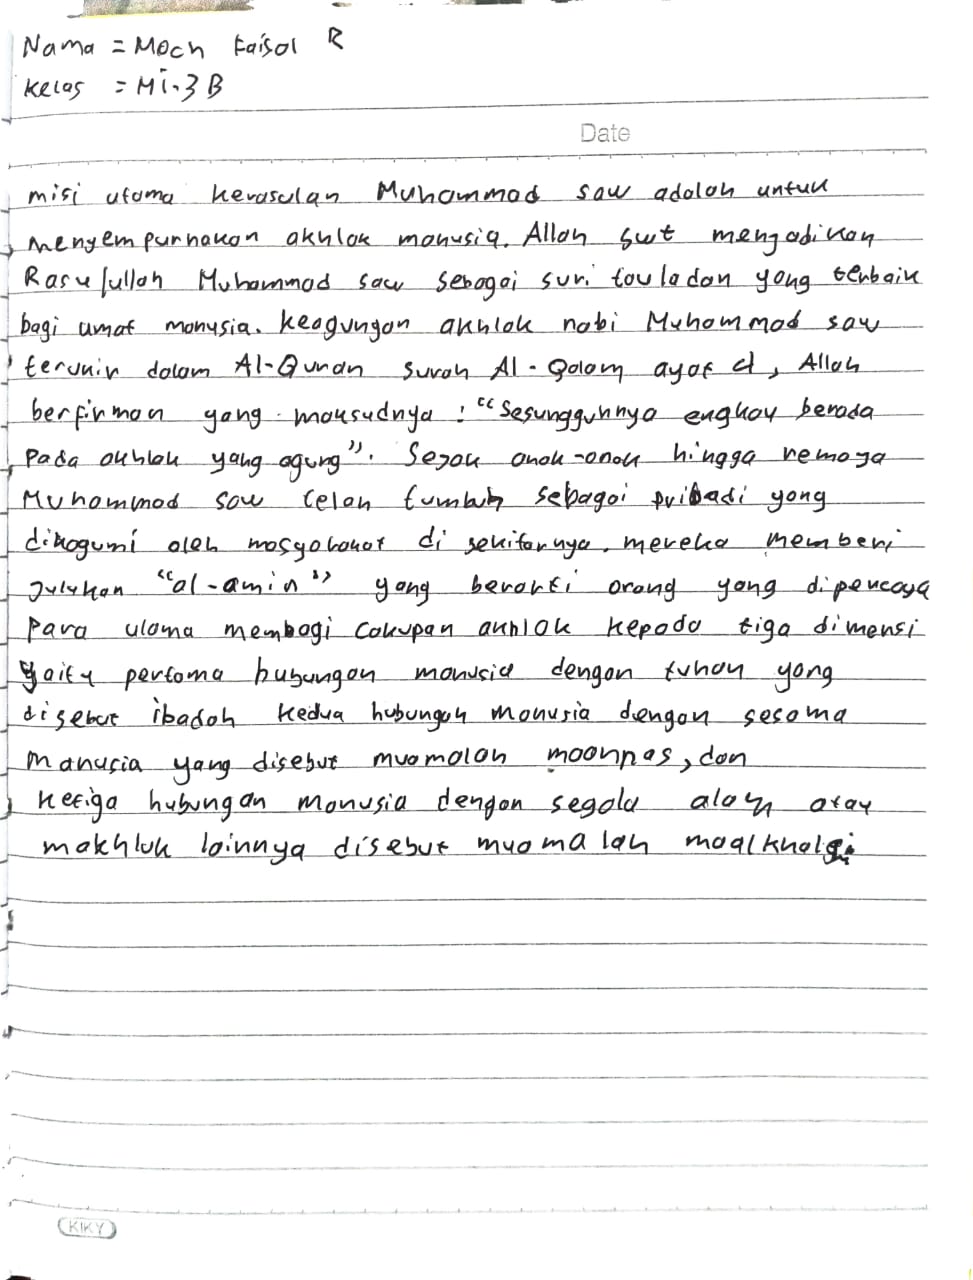 Nama = Moch Faisol R
Kelas = Mi.3B
Date
misi utama kerasulan Muhammad saw adalah untuk
menyempurnakan akhlak manusia. Allah swt mengadikan
Rasulullah Muhammad saw sebagai suri tauladan yang terbaik
bagi umat manusia. keagungan akhlak nabi Muhammad saw
terukir dalam Al-Quran surah Al-Qalam ayat 4, Allah
berfirman yang maksudnya : "Sesungguhnya engkau berada
pada akhlak yang agung". Sejak anak-anak hingga remaja
Muhammad saw telah tumbuh sebagai pribadi yang
dikagumi oleh masyarakat di sekitarnya. mereka memberi
Julukan "al-amin" yang berarti orang yang dipercaya
Para ulama membagi cakupan akhlak kepada tiga dimensi
yaitu pertama hubungan manusia dengan tuhan yang
disebut ibadah kedua hubungan manusia dengan sesama
manusia yang disebut muamalah maannas, dan
ketiga hubungan manusia dengan segala alam atau
makhluk lainnya disebut muamalah maalkhalqi
KIKY